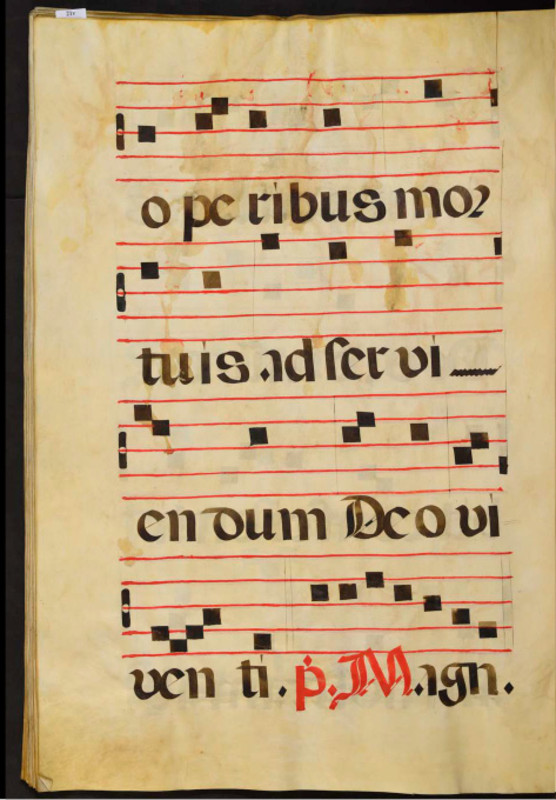 o pe ribus mor
tu is ad ser vi
en dum Deo vi
ven ti. p. Magn.